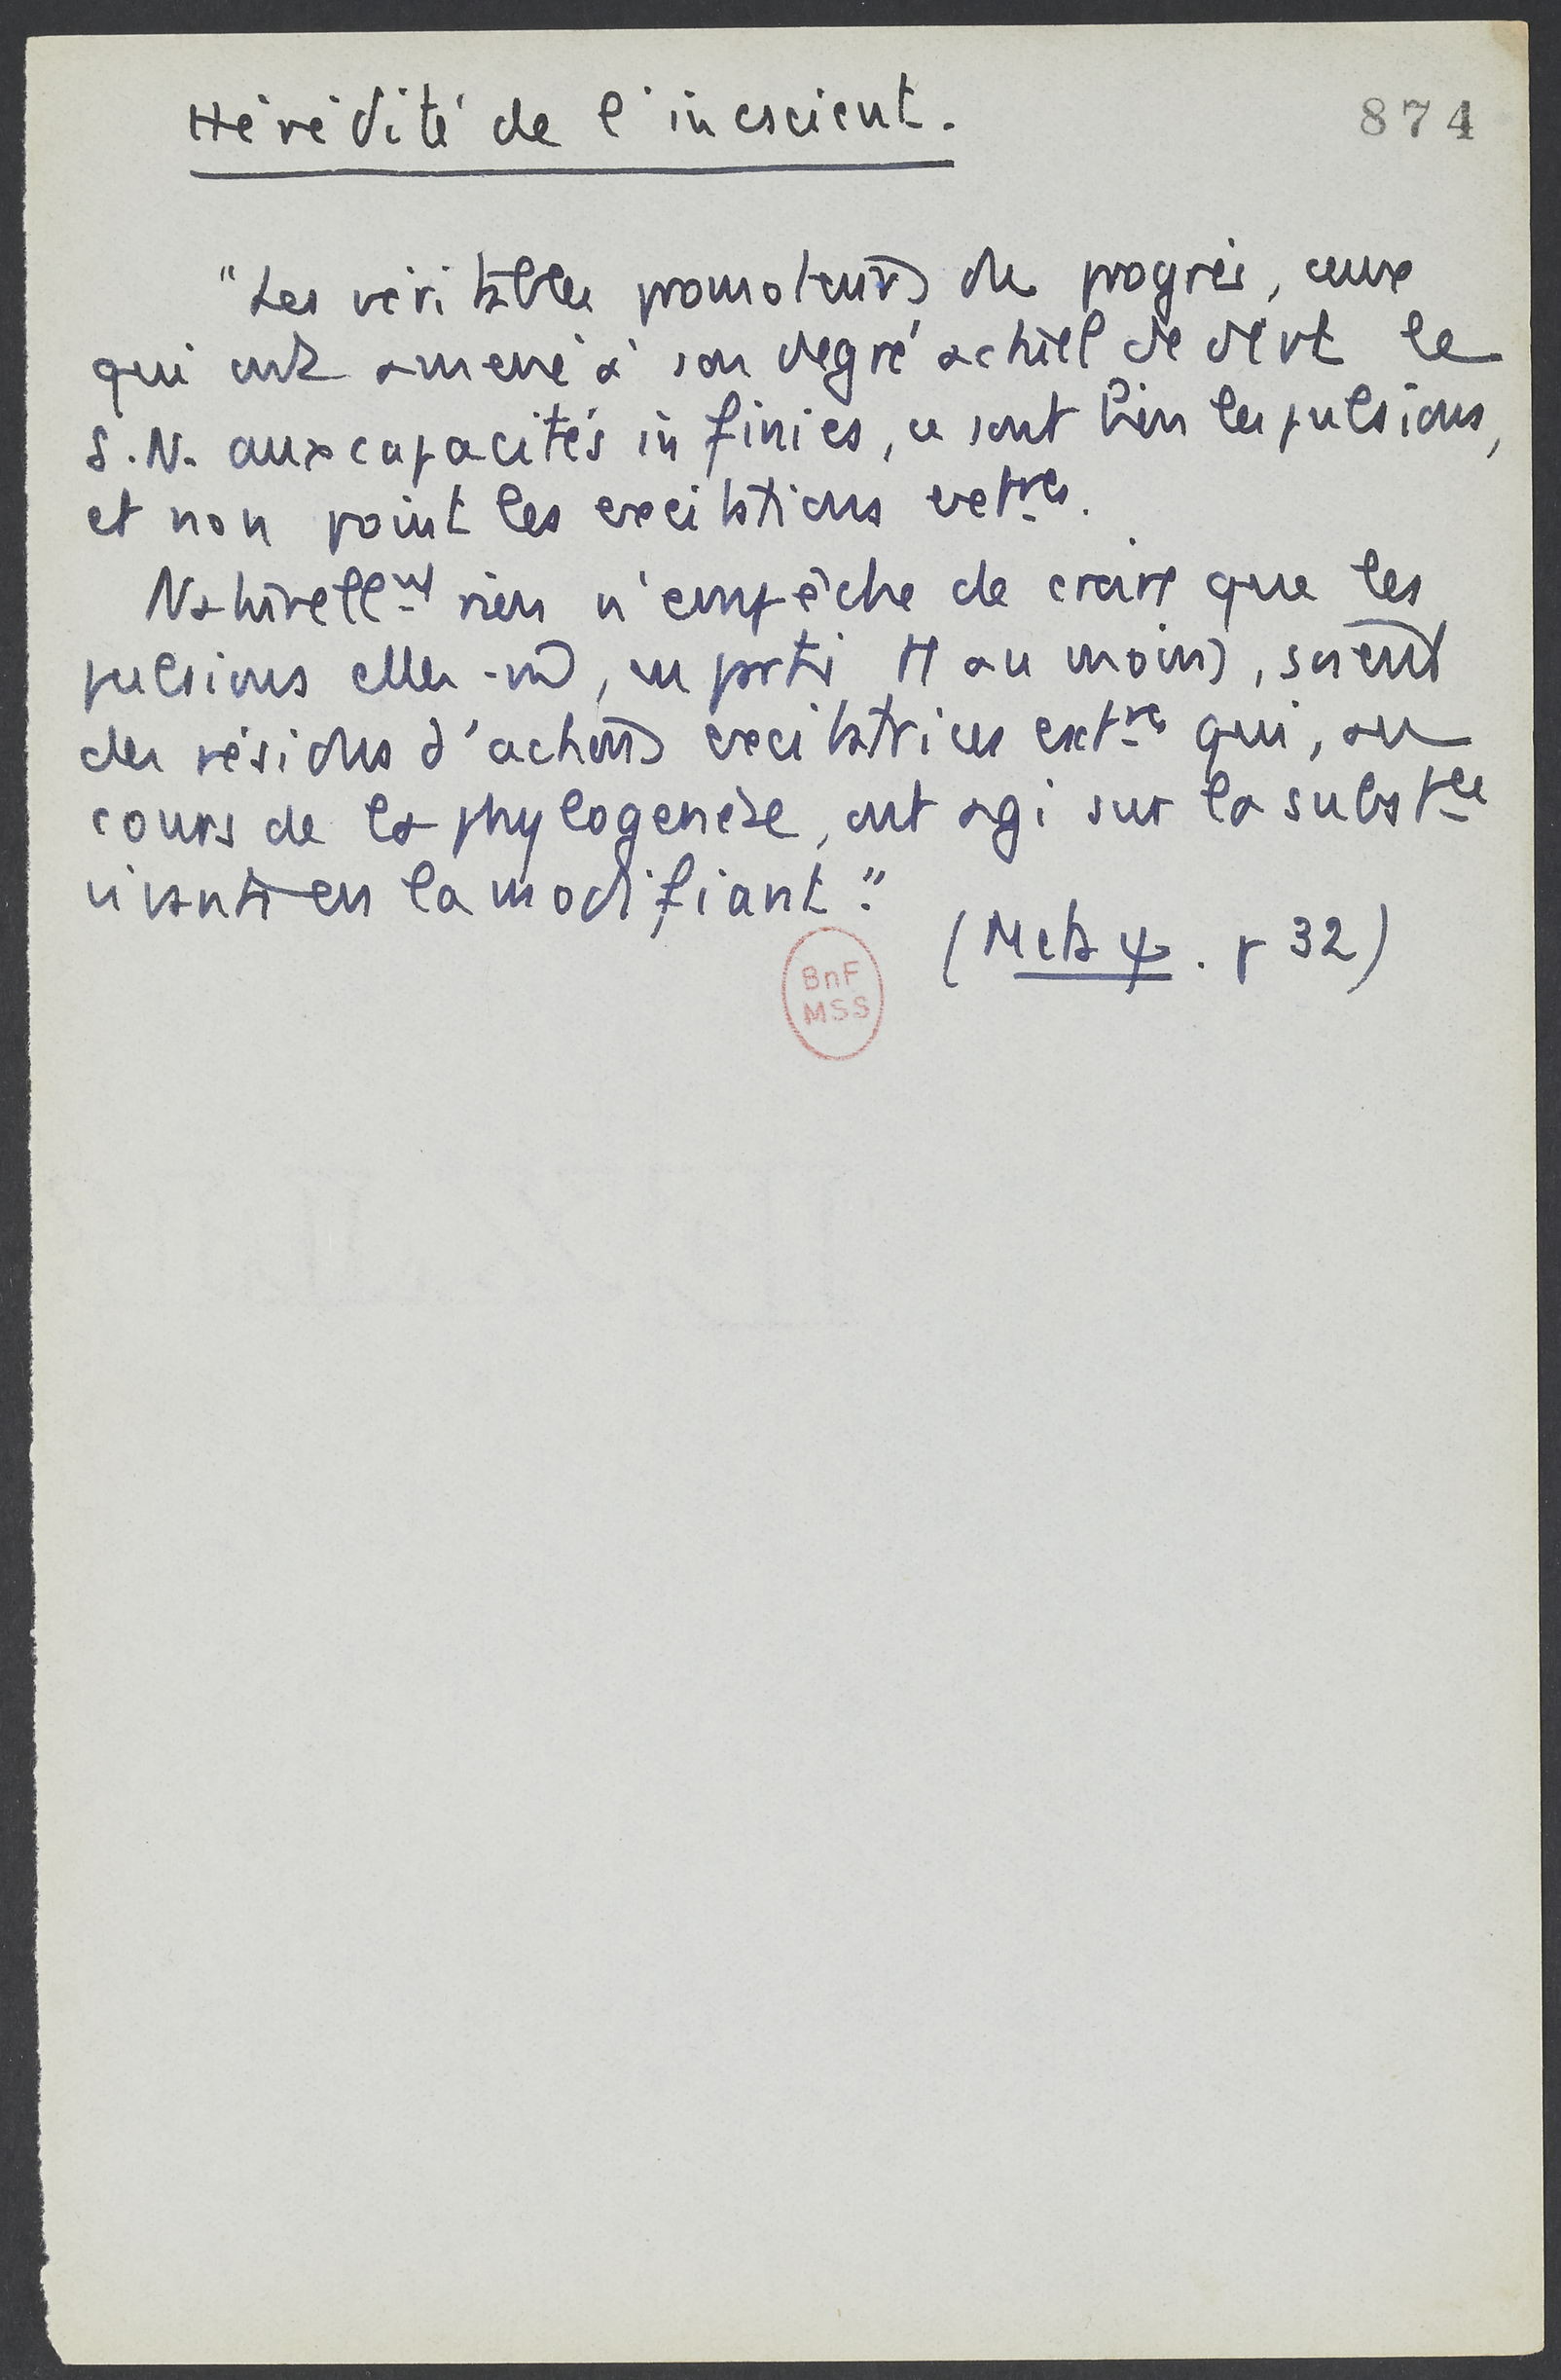 Hérédité de l'inescient.
874
"Les véritables promoteurs du progrès, ceux
qui ont amené à son degré actuel de dévt le
S.N. aux capacités infinies, ce sont bien les pulsions,
et non point les excitations extres.
Naturellmt rien n'empêche de croire que les
pulsions elles-m̂, en partie tt au moins, soient
des résidus d'actions excitatrices extres qui, au
cours de la phylogenèse, ont agi sur la substce
vivante en la modifiant."
(Meta ψ. p 32)
BnF
MSS